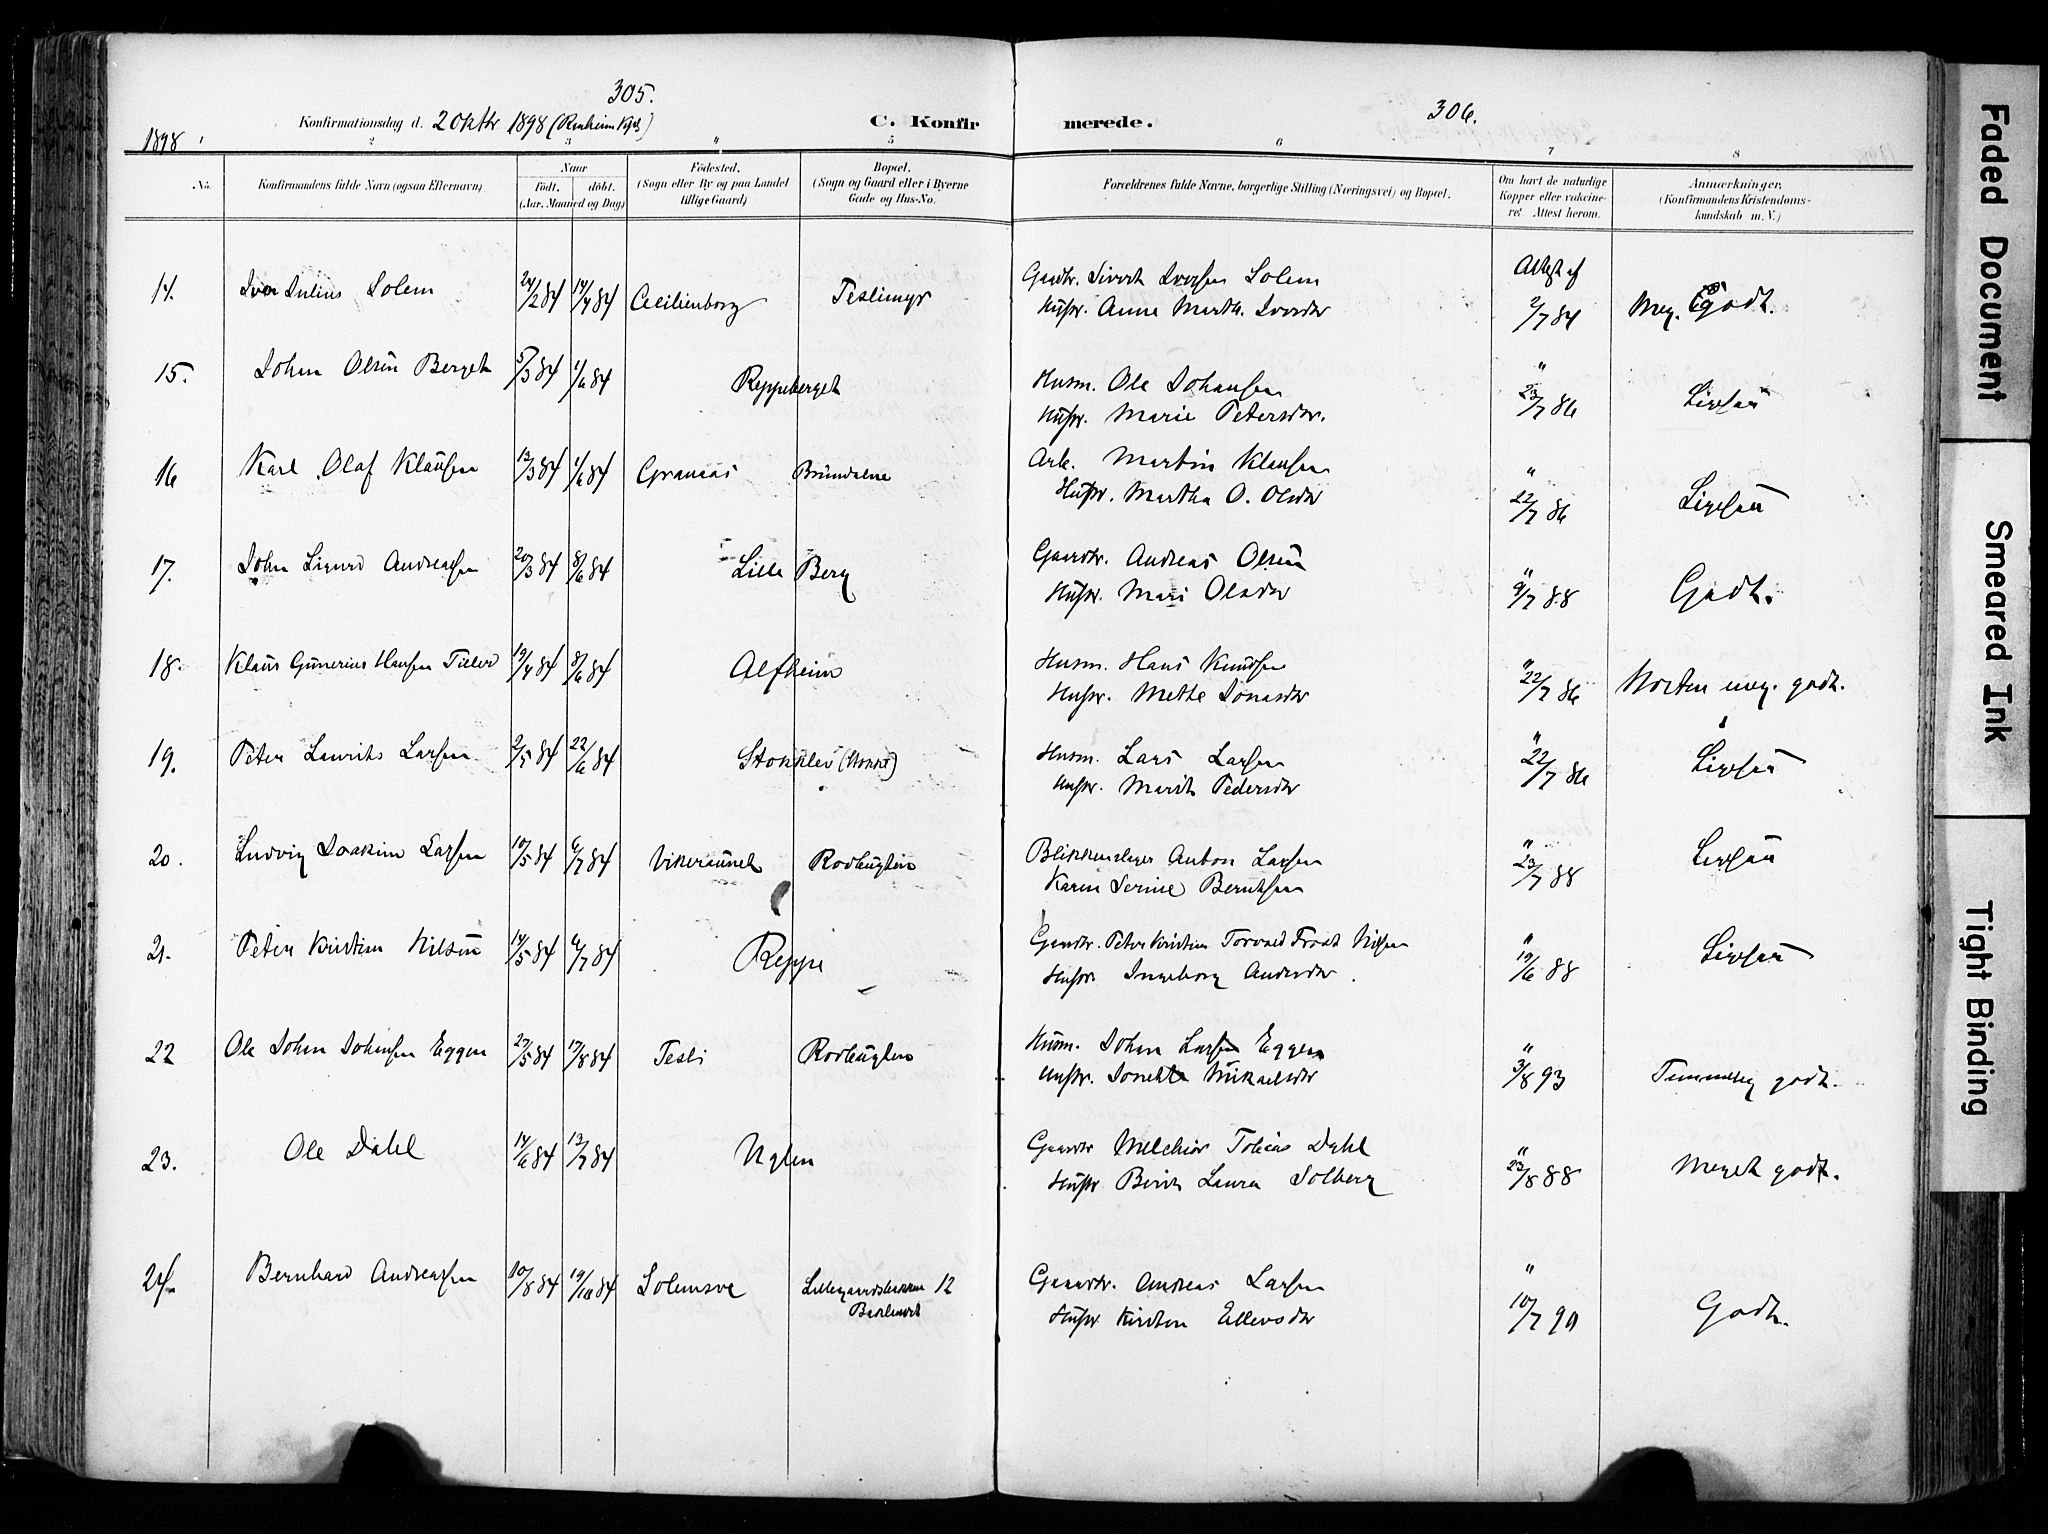 305.
306.
1898
Konfirmationsdag d. 2 Oktbr 1898
C. Konfirmerede.
2 3 " 5 6 7 8
No.
Konfirmandens fulde Navn (ogsaa Efternavn)
Naar
födt. döbt.
(Aar, Maaned og Dag)
Födested.
(Sogn eller By og paa Landet
tillige Gaard)
Bopæl.
(Sogn og Gaard eller i Byerne
Gade og Hus-No.
Forældrenes fulde Navne, borgerlige Stilling (Næringsvei) og Bopæl.
Om havt de naturlige
Kopper eller vakcine-
ret. Attest herom.
Anmærkninger,
(Konfirmandens Kristendoms-
kundskab m. V.)
14. Iver Julius Solem 24/2 84 14/4 84 Cecilienborg Teslimyr Gaardbr. Sivert Iversen Solem Attest af
Hustr. Anne Marth. Iversdr 2/7 84 Meg. Godt.
15. Johan Olsen Berget 5/3 84 1/6 84 Reppeberget Husm. Ole Johansen "
Hustr. Marie Petersdr. 23/7 86 Ligesaa
16 Karl Olaf Klausen 12/3 84 1/6 84 Granaas Brundalene Arb. Martin Klausen "
Hustr. Martha O. Olsdr 22/7 86 Ligesaa
17. John Sigurd Andreassen 20/3 84 8/6 84 Lille Berg Gaardbr. Andreas Olsen "
Hustr. Mari Olsdr 9/7 88 Godt.
18. Klaus Gunerius Hansen Tiller 19/4 84 8/6 84 Alfheim Husm. Hans Knudsen "
Hustr. Mette Jonasdr 22/7 86 Næsten meg. godt.
19. Peter Laurits Larsen 2/5 84 22/6 84 Stokklev Husm. Lars Larsen "
Hustr. Marit Pedersdr 22/7 86 Ligesaa
20. Ludvig Joakim Larsen 10/5 84 6/7 84 Vikeraunet Rodhuglen Blikkenslager Anton Larsen "
Karen Serine Berntsen 23/7 88 Ligesaa
21. Peter Kristian Nilsen 14/5 84 6/7 84 Reppe Gaardbr. Peter Kristian Torvald Frost Nilsen "
Hustr. Ingeborg Andersdr. 19/6 88 Ligesaa
22 Ole Johan Johansen Eggen 27/5 84 17/8 84 Tesli Rodhuglen Husm. Johan Larsen Eggen "
Hustr. Jonette Mikaelsdr 3/8 93 Temmelig godt.
23. Ole Dahl 14/6 84 13/7 84 Uglen Gaardbr Melchior Tobias Dahl "
Hustr Berit Laura Solberg 23/8 88 Meget godt.
24. Bernhard Andreassen 10/8 84 19/10 84 Solemsve Lillegaardsbakken 12 Gaardbr. Andreas Larsen "
Baklandet Hustr Kirsten Ellevsdr 10/7 90 Godt.
Faded Document
Smeared Ink
Tight Binding